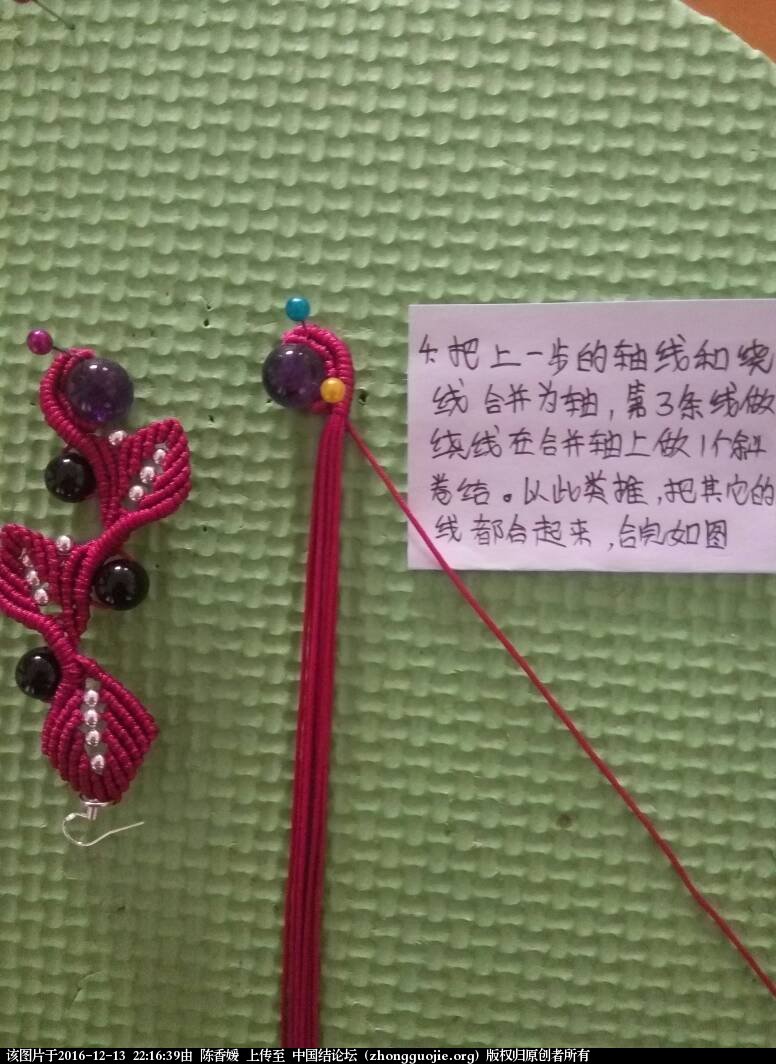 4:把上一步的轴线和绕
线合并为轴,第3条线做
绕线在合并轴上做1个斜
卷结。以此类推,把其它的
线都合起来,合完如图
该图片于2016-12-13 22:16:39由 陈香媛 上传至 中国结论坛 (zhongguojie.org) 版权归原创者所有